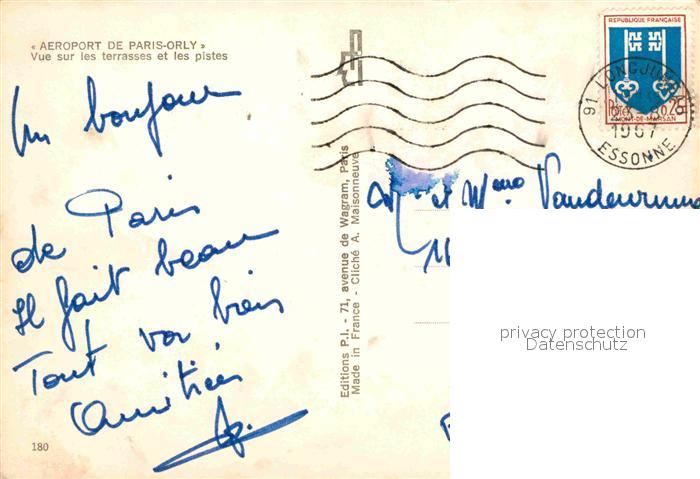 « AEROPORT DE PARIS-ORLY »
Vue sur les terrasses et les pistes
Un bonjour
de Paris
Il fait beau
Tout va bien
Amitiés
180
Editions P.I. - 71, avenue de Wagram, Paris
Made in France - Cliché A. Maisonneuve
REPUBLIQUE FRANÇAISE
MONT-DE-MARSAN
91 LONGJUMEAU
1967
ESSONNE
et Mme
privacy protection
Datenschutz